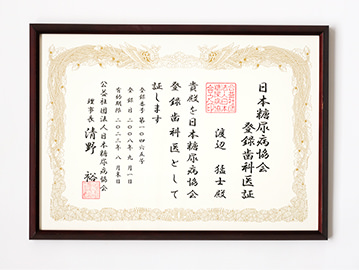 日本糖尿病協会
登録歯科医証
渡辺 猛士殿
貴殿を日本糖尿病協会
登録歯科医として
証します
登録番号 第一〇四六五号
登録日 二〇〇八年 九月一日
有効期限 二〇二三年 八月末日
公益社団法人日本糖尿病協会
理事長 清野 裕